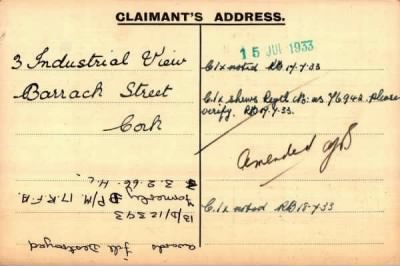 CLAIMANT'S ADDRESS.
3 Industrial View
Barrack Street
Cork
15 JUL 1933
C/x noted RB 17.7.33
C/x shews Regtl No: as 76942. Please
verify. RB 17.7.33.
Amended
C/x noted RB 18.7.33
3.2.66. H.C.
Formerly P/M. 17. R.F.A.
13/D/12343
awards file Destroyed